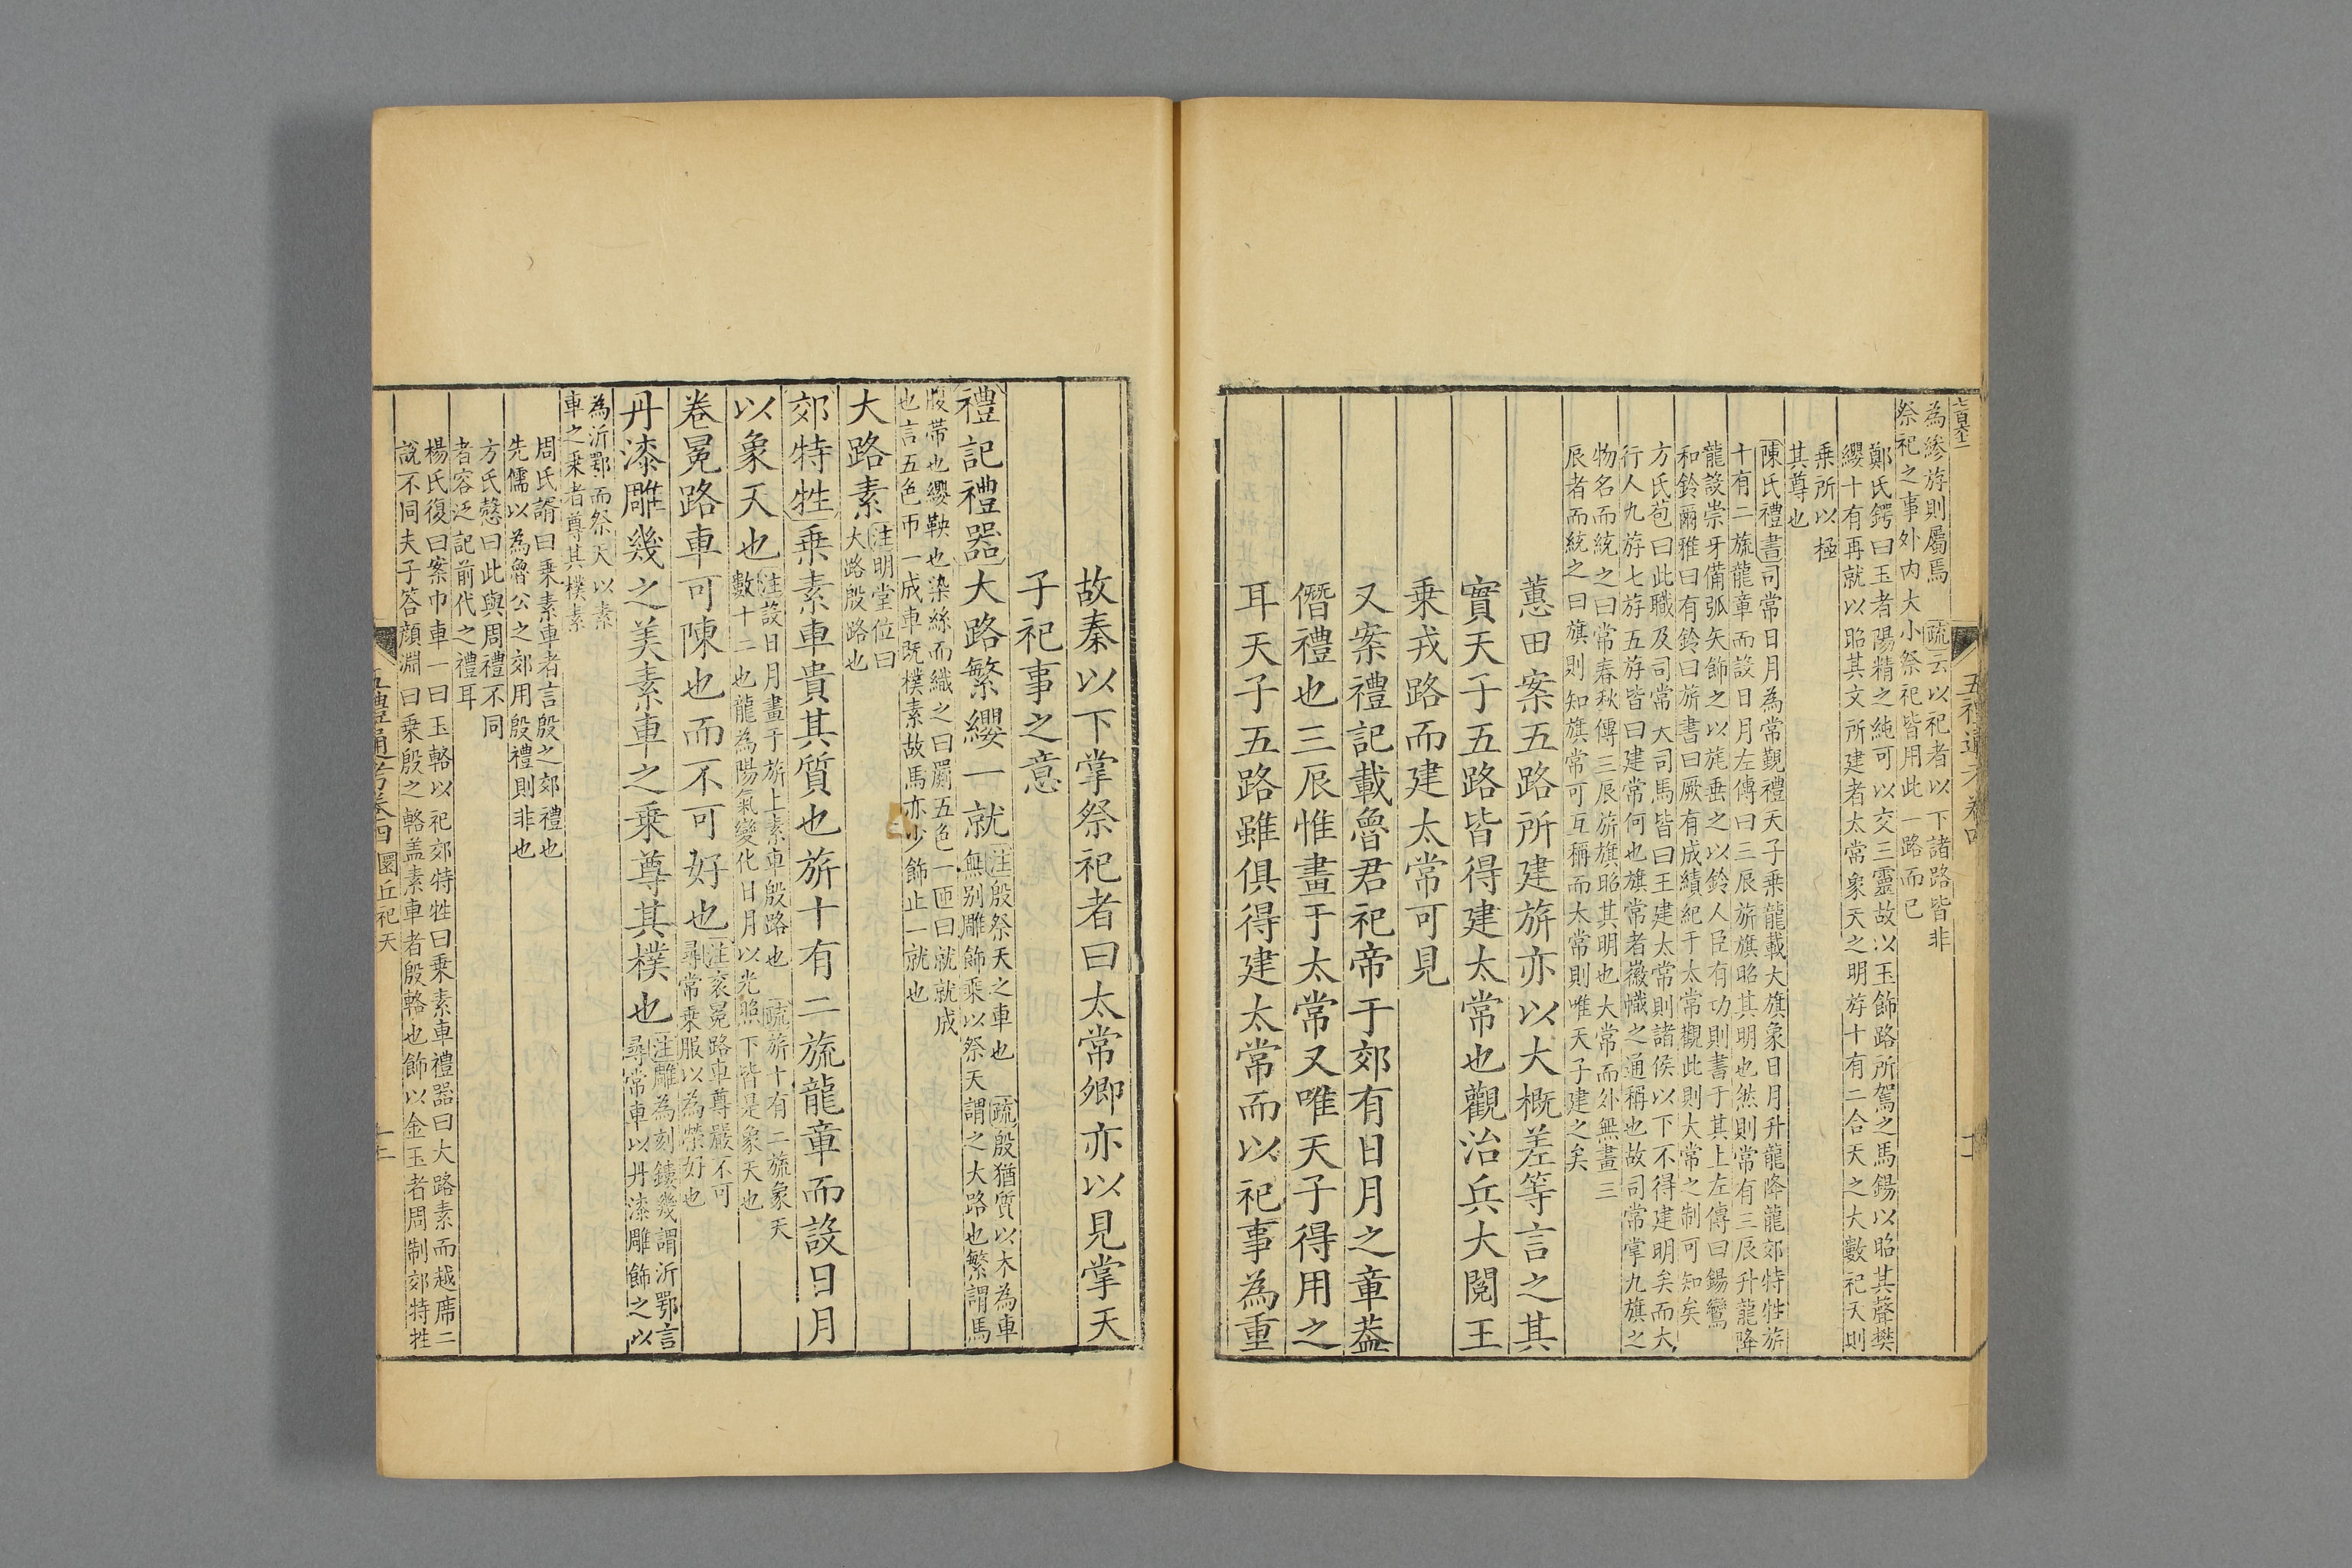 為縿斿則屬焉　疏云以祀者以下諸路皆非
祭祀之事外內大小祭祀皆用此一路而已
鄭氏鍔曰玉者陽精之純可以交三靈故以玉飾路所駕之馬錫以昭其聲樊
纓十有再就以昭其文所建者太常象天之明斿十有二合天之大數祀天則
乗所以極
其尊也
陳氏禮書司常日月為常覲禮天子乗龍載大旗象日月升龍降龍郊特牲旂
十有二旒龍章而設日月左傳曰三辰旂旗昭其明也然則常有三辰升龍降
龍設崇牙備弧矢飾之以旄垂之以鈴人臣有功則書于其上左傳曰錫鸞
和鈴爾雅曰有鈴曰旂書曰厥有成績紀于太常觀此則大常之制可知矣
方氏苞曰此職及司常大司馬皆曰王建太常則諸侯以下不得建明矣而大
行人九斿七斿五斿皆曰建常何也旗常者徽幟之通稱也故司常掌九旗之
物名而統之曰常春秋傳三辰旂旗昭其明也大常而外無畫三
辰者而統之曰旗則知旗常可互稱而太常則唯天子建之矣
蕙田案五路所建旂亦以大概差等言之其
實天子五路皆得建太常也觀治兵大閱王
乗戎路而建太常可見
又案禮記載魯君祀帝于郊有日月之章葢
僭禮也三辰惟畫于太常又唯天子得用之
耳天子五路雖俱得建太常而以祀事為重
五禮通考卷四
故秦以下掌祭祀者曰太常卿亦以見掌天
子祀事之意
禮記禮器大路繁纓一就注殷祭天之車也　疏殷猶質以木為車
無別雕飾乗以祭天謂之大路也繁謂馬
腹帶也纓鞅也染絲而織之曰罽五色一匝曰就就成
也言五色帀一成車既樸素故馬亦少飾止一就也
大路素注明堂位曰
大路殷路也
郊特牲乗素車貴其質也旂十有二旒龍章而設日月
以象天也注設日月畫于旂上素車殷路也　疏旂十有二旒象天
數十二也龍為陽氣變化日月以光照下皆是象天也
卷冕路車可陳也而不可好也注衮冕路車尊嚴不可
尋常乗服以為榮好也
丹漆雕幾之美素車之乗尊其樸也注雕為刻鏤幾謂沂鄂言
尋常車以丹漆雕飾之以
為沂鄂而祭天以素
車之乗者尊其樸素
周氏諝曰乗素車者言殷之郊禮也
先儒以為魯公之郊用殷禮則非也
方氏慤曰此與周禮不同
者容泛記前代之禮耳
楊氏復曰案巾車一曰玉輅以祀郊特牲曰乗素車禮器曰大路素而越席二
說不同夫子答顏淵曰乗殷之輅盖素車者殷輅也飾以金玉者周制郊特牲
五禮通考卷四　圜丘祀天